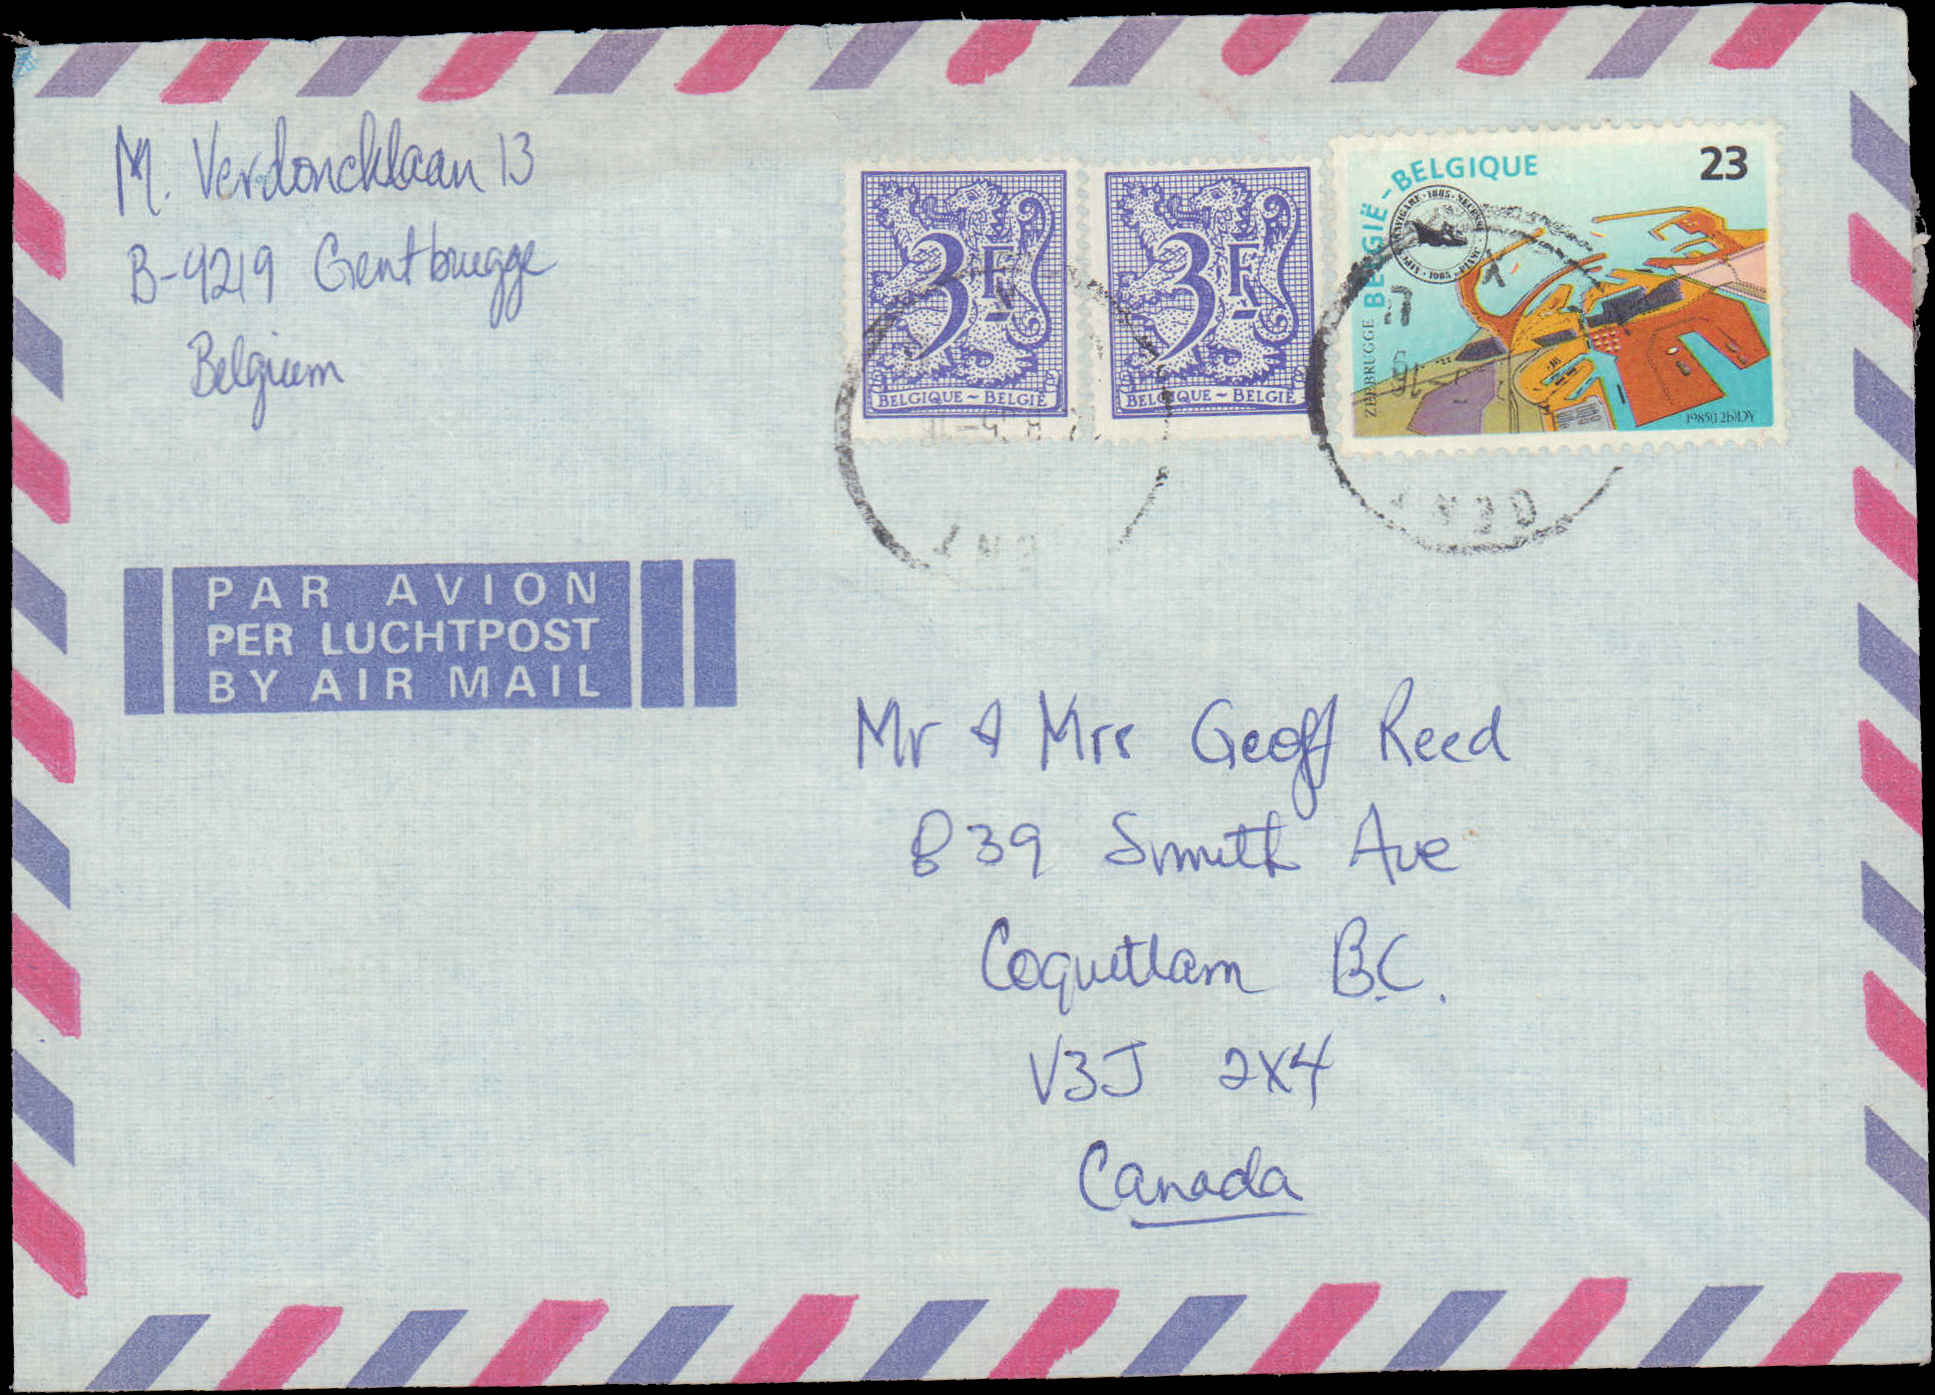 M. Verdoncklaan 13
B-9219 Gentbrugge
Belgium
3F
BELGIQUE ~ BELGIË
3F
BELGIQUE ~ BELGIË
BELGIË - BELGIQUE
23
1885
1985
ZEEBRUGGE
PAR AVION
PER LUCHTPOST
BY AIR MAIL
Mr & Mrs Geoff Reed
839 Smith Ave
Coquitlam B.C.
V3J 2X4
Canada